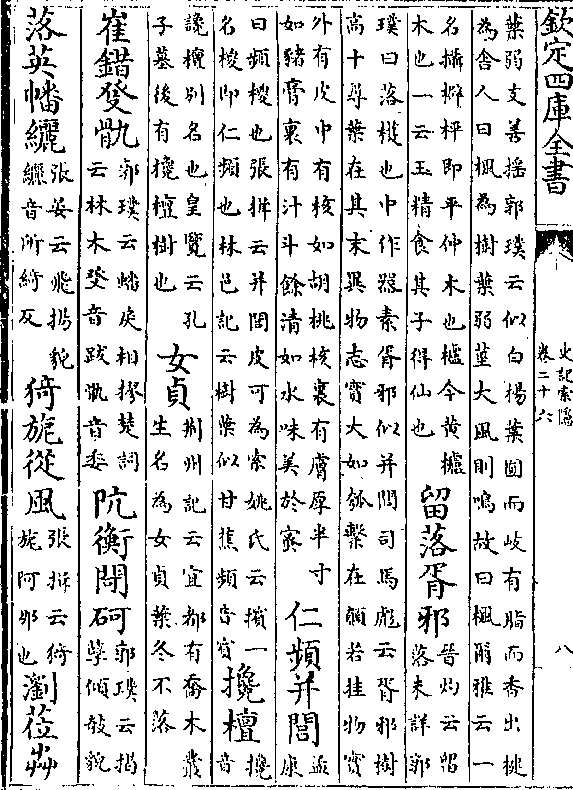 欽定四庫全書
史記索隱
卷二十六
八
葉弱支善揺郭璞云似白楊葉圎而岐有脂而香出桃
為舎人曰楓為樹葉弱莖大風則鳴故曰楓爾雅云一
名攝櫸枰即平仲木也櫨今黄櫨
木也一云玉精食其子得仙也
留落胥邪
晉灼云留
落未詳郭
璞曰落檴也中作器素胥邪似并閭司馬彪云胥邪樹
高十尋葉在其末異物志實大如瓠繫在顛若挂物實
外有皮中有核如胡桃核裏有膚厚半寸
如豬膏裏有汁斗餘清如水味美於蜜
仁頻并閭
孟
康
曰頻椶也張揖云并閭皮可為索姚氏云檳一
名椶即仁頻也林邑記云樹葉似甘蕉頻音賓
攙檀
攙
音
讒檀别名也皇覽云孔
子墓後有攙檀樹也
女貞
荆州記云宜都有喬木叢
生名為女貞葉冬不落
崔錯癹骫
郭璞云蟠戾相摎楚詞
云林木癹音跋骫音委
阬衡閜砢
郭璞云揭
孽傾攲貌
落英幡纚
張晏云飛揚貌
纚音所綺反
猗旎從風
張揖云猗
旎阿那也
瀏莅芔